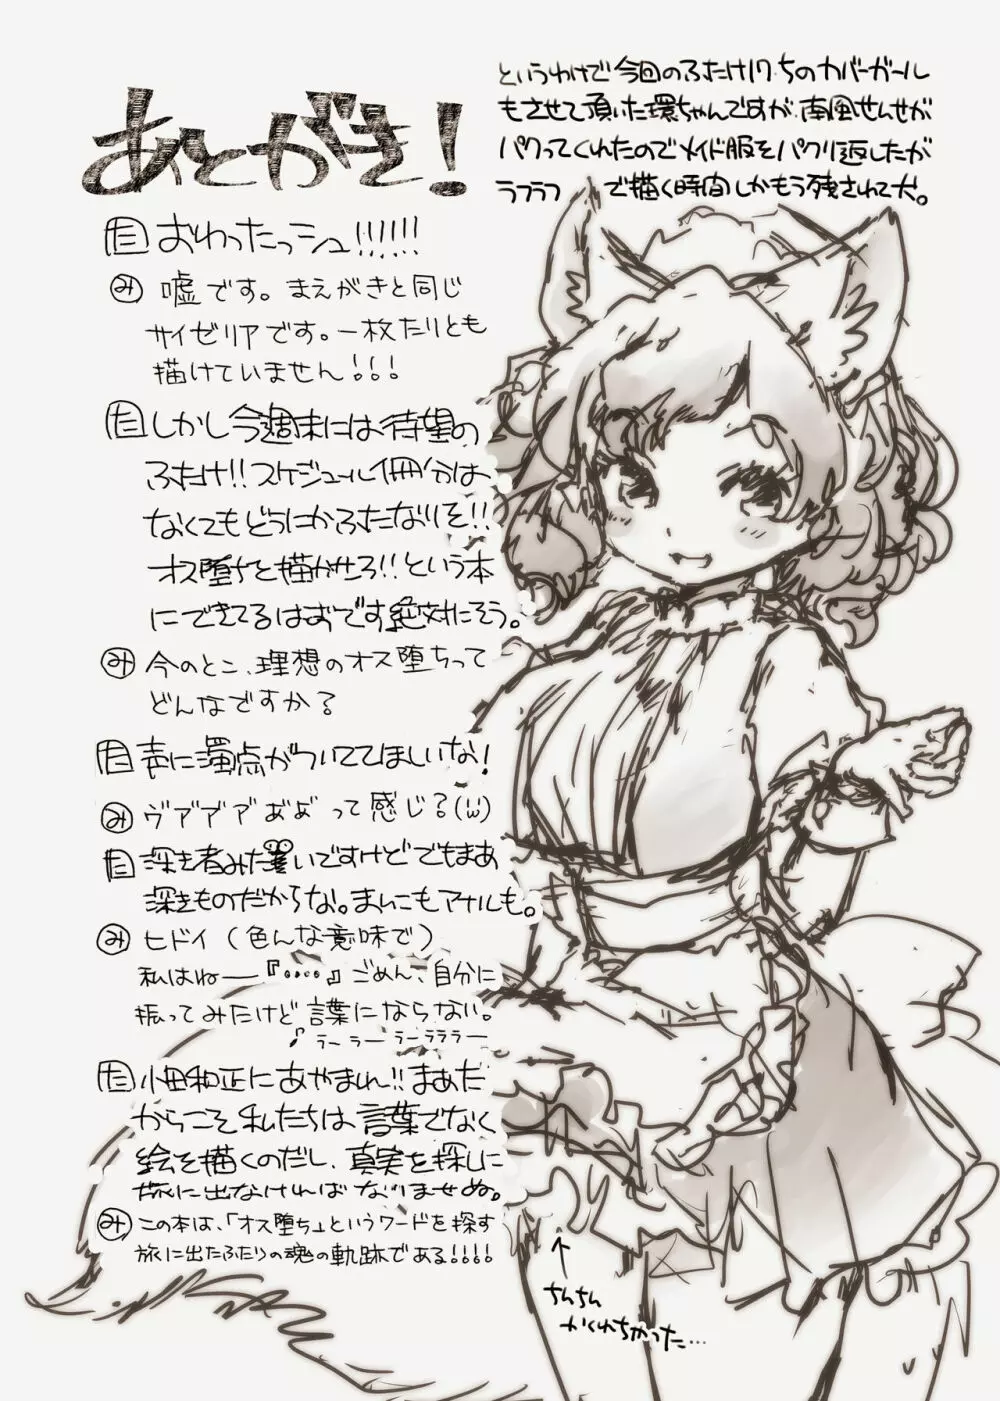 あとがき!
というわけで今回のふたけ17.5のカバーガール
もさせて頂いた環ちゃんですが、南風せんせが
パクってくれたのでメイド服をパクリ返したが
ラフラフ で描く時間しかもう残されて犬。
た おわったっシュ!!!!!!
み 嘘です。まえがきと同じ
サイゼリアです。一枚たりとも
描けていません!!!
た しかし今週末には待望の
ふたけ!!スケジュール1冊分は
なくてもどうにかふたなりを!!
オス堕ちを描かせろ!!という本
にできてるはずです絶対にそう。
み 今のとこ、理想のオス堕ちって
どんなですか?
た 声に濁点がついててほしいな!
み ヴアアアおよ゛って感じ?(ω)
た 深き者みた いですけどでもまあ
深きものだからな。まんこもアナルも。
み ヒドイ(色んな意味で)
私はねー『・・・・』ごめん、自分に
振ってみたけど言葉にならない。
♪ラーラーラーラララー
た 小田和正にあやまれ!!まあだ
からこそ私たちは言葉でなく
絵を描くのだし、真実を探しに
旅に出なければなりませぬ。
み この本は、「オス堕ち」というワードを探す
旅に出たふたりの魂の軌跡である!!!!
↑
ちんちん
かくれちゃった…